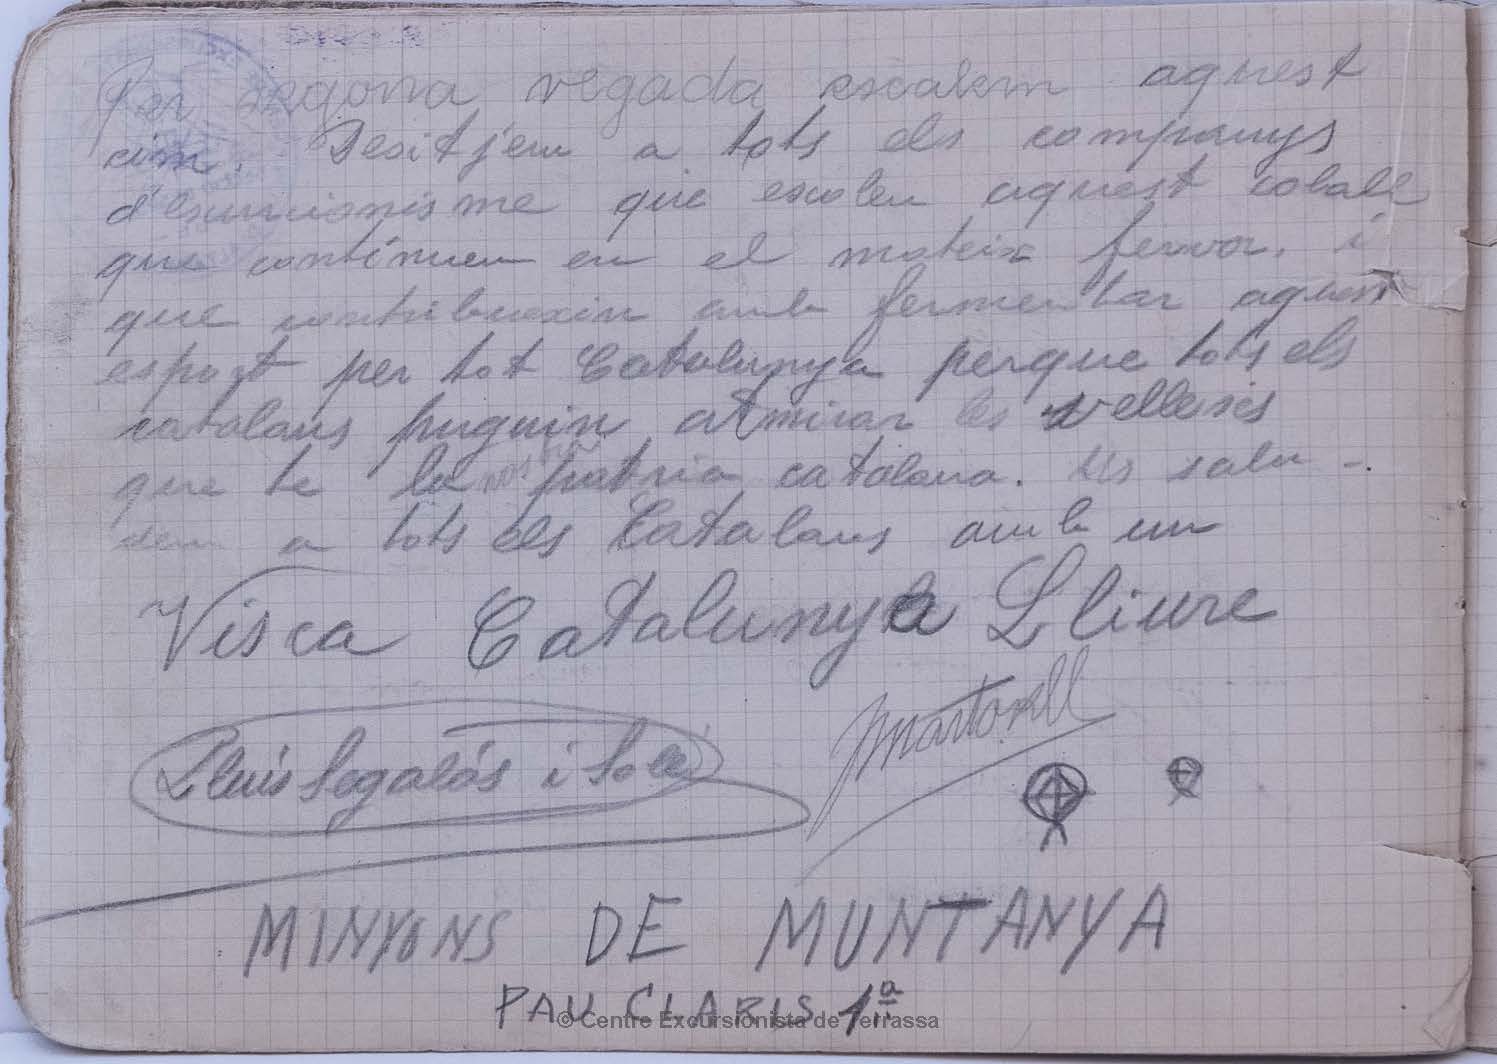 Per segona vegada escalem aquest
cim. Desitjem a tots els companys
d'escursionisme que escalen aquest coball
que continuen en el mateix fervor. i
que contribuexin amb fermentar aquest
esport per tot Catalunya perque tots els
catalans puguin atmirar les velleses
que te la patria catalana. Us salu-
dem a tots els Catalans amb un
Visca Catalunya Lliure
Lluís Segalás i Solé
Martorell
MINYONS DE MUNTANYA
PAU CLARIS 1ª
© Centre Excursionista de Terrassa